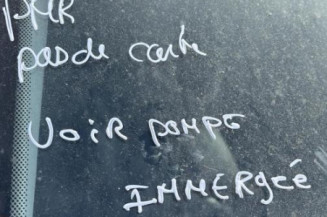 PMR
pas de carte
VOIR POMPE
IMMERGéé